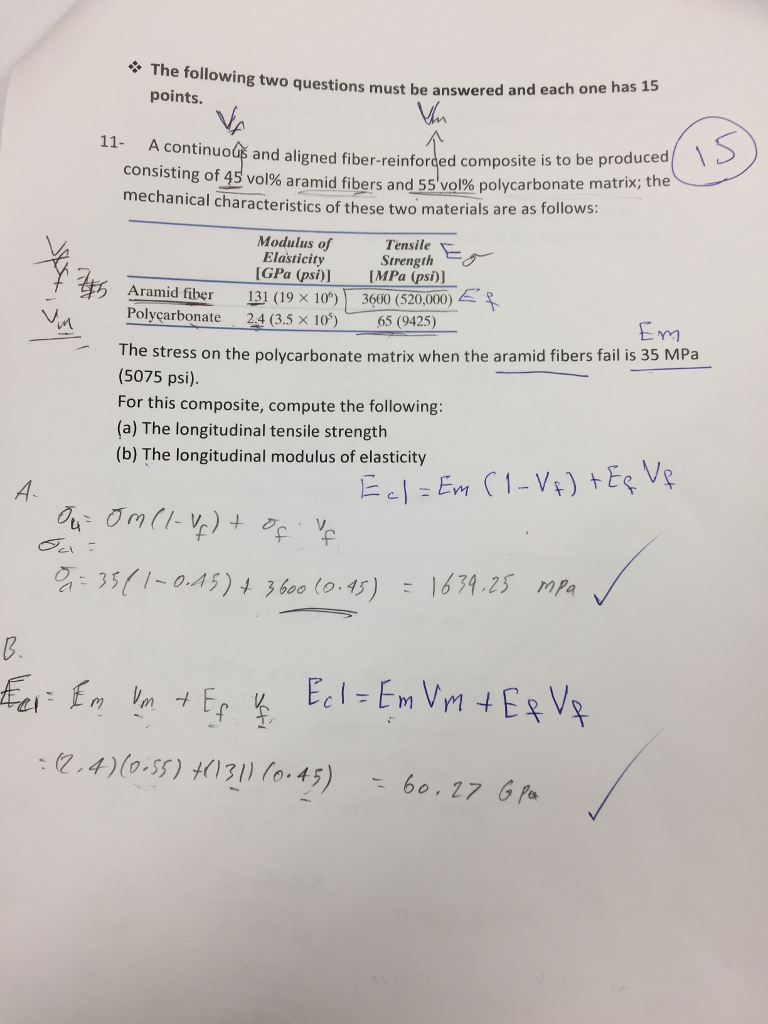 ❖ The following two questions must be answered and each one has 15
points.
Vf Vm
15
11- A continuous and aligned fiber-reinforced composite is to be produced
consisting of 45 vol% aramid fibers and 55 vol% polycarbonate matrix; the
mechanical characteristics of these two materials are as follows:
Modulus of Elasticity [GPa (psi)] Tensile Strength [MPa (psi)] Eσ
Aramid fiber 131 (19 × 10⁶) 3600 (520,000) Ef
Polycarbonate 2.4 (3.5 × 10⁵) 65 (9425)
Vm
Em
The stress on the polycarbonate matrix when the aramid fibers fail is 35 MPa
(5075 psi).
For this composite, compute the following:
(a) The longitudinal tensile strength
(b) The longitudinal modulus of elasticity
Ecl = Em (1-Vf) + Ef Vf
A.
σu = σm(1-Vf) + σf · Vf
σcl =
σcl = 35(1-0.45) + 3600(0.45) = 1639.25 mpa ✓
B.
Ecl = Em Vm + Ef Vf Ecl = Em Vm + Ef Vf
= (2.4)(0.55) + (131)(0.45) = 60.27 GPa ✓